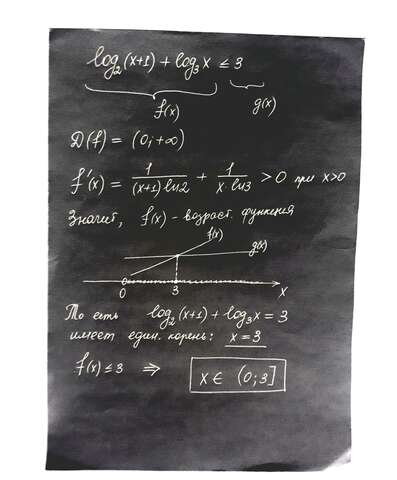 log₂(x+1) + log₃x ≤ 3
f(x)
g(x)
D(f) = (0; +∞)
f'(x) = 1/((x+1)ln2) + 1/(x·ln3) > 0 при x>0
Значит, f(x) - возраст. функция
f(x)
g(x)
0 3 x
То есть log₂(x+1) + log₃x = 3
имеет един. корень: x = 3
f(x) ≤ 3 ⇒ x ∈ (0; 3]